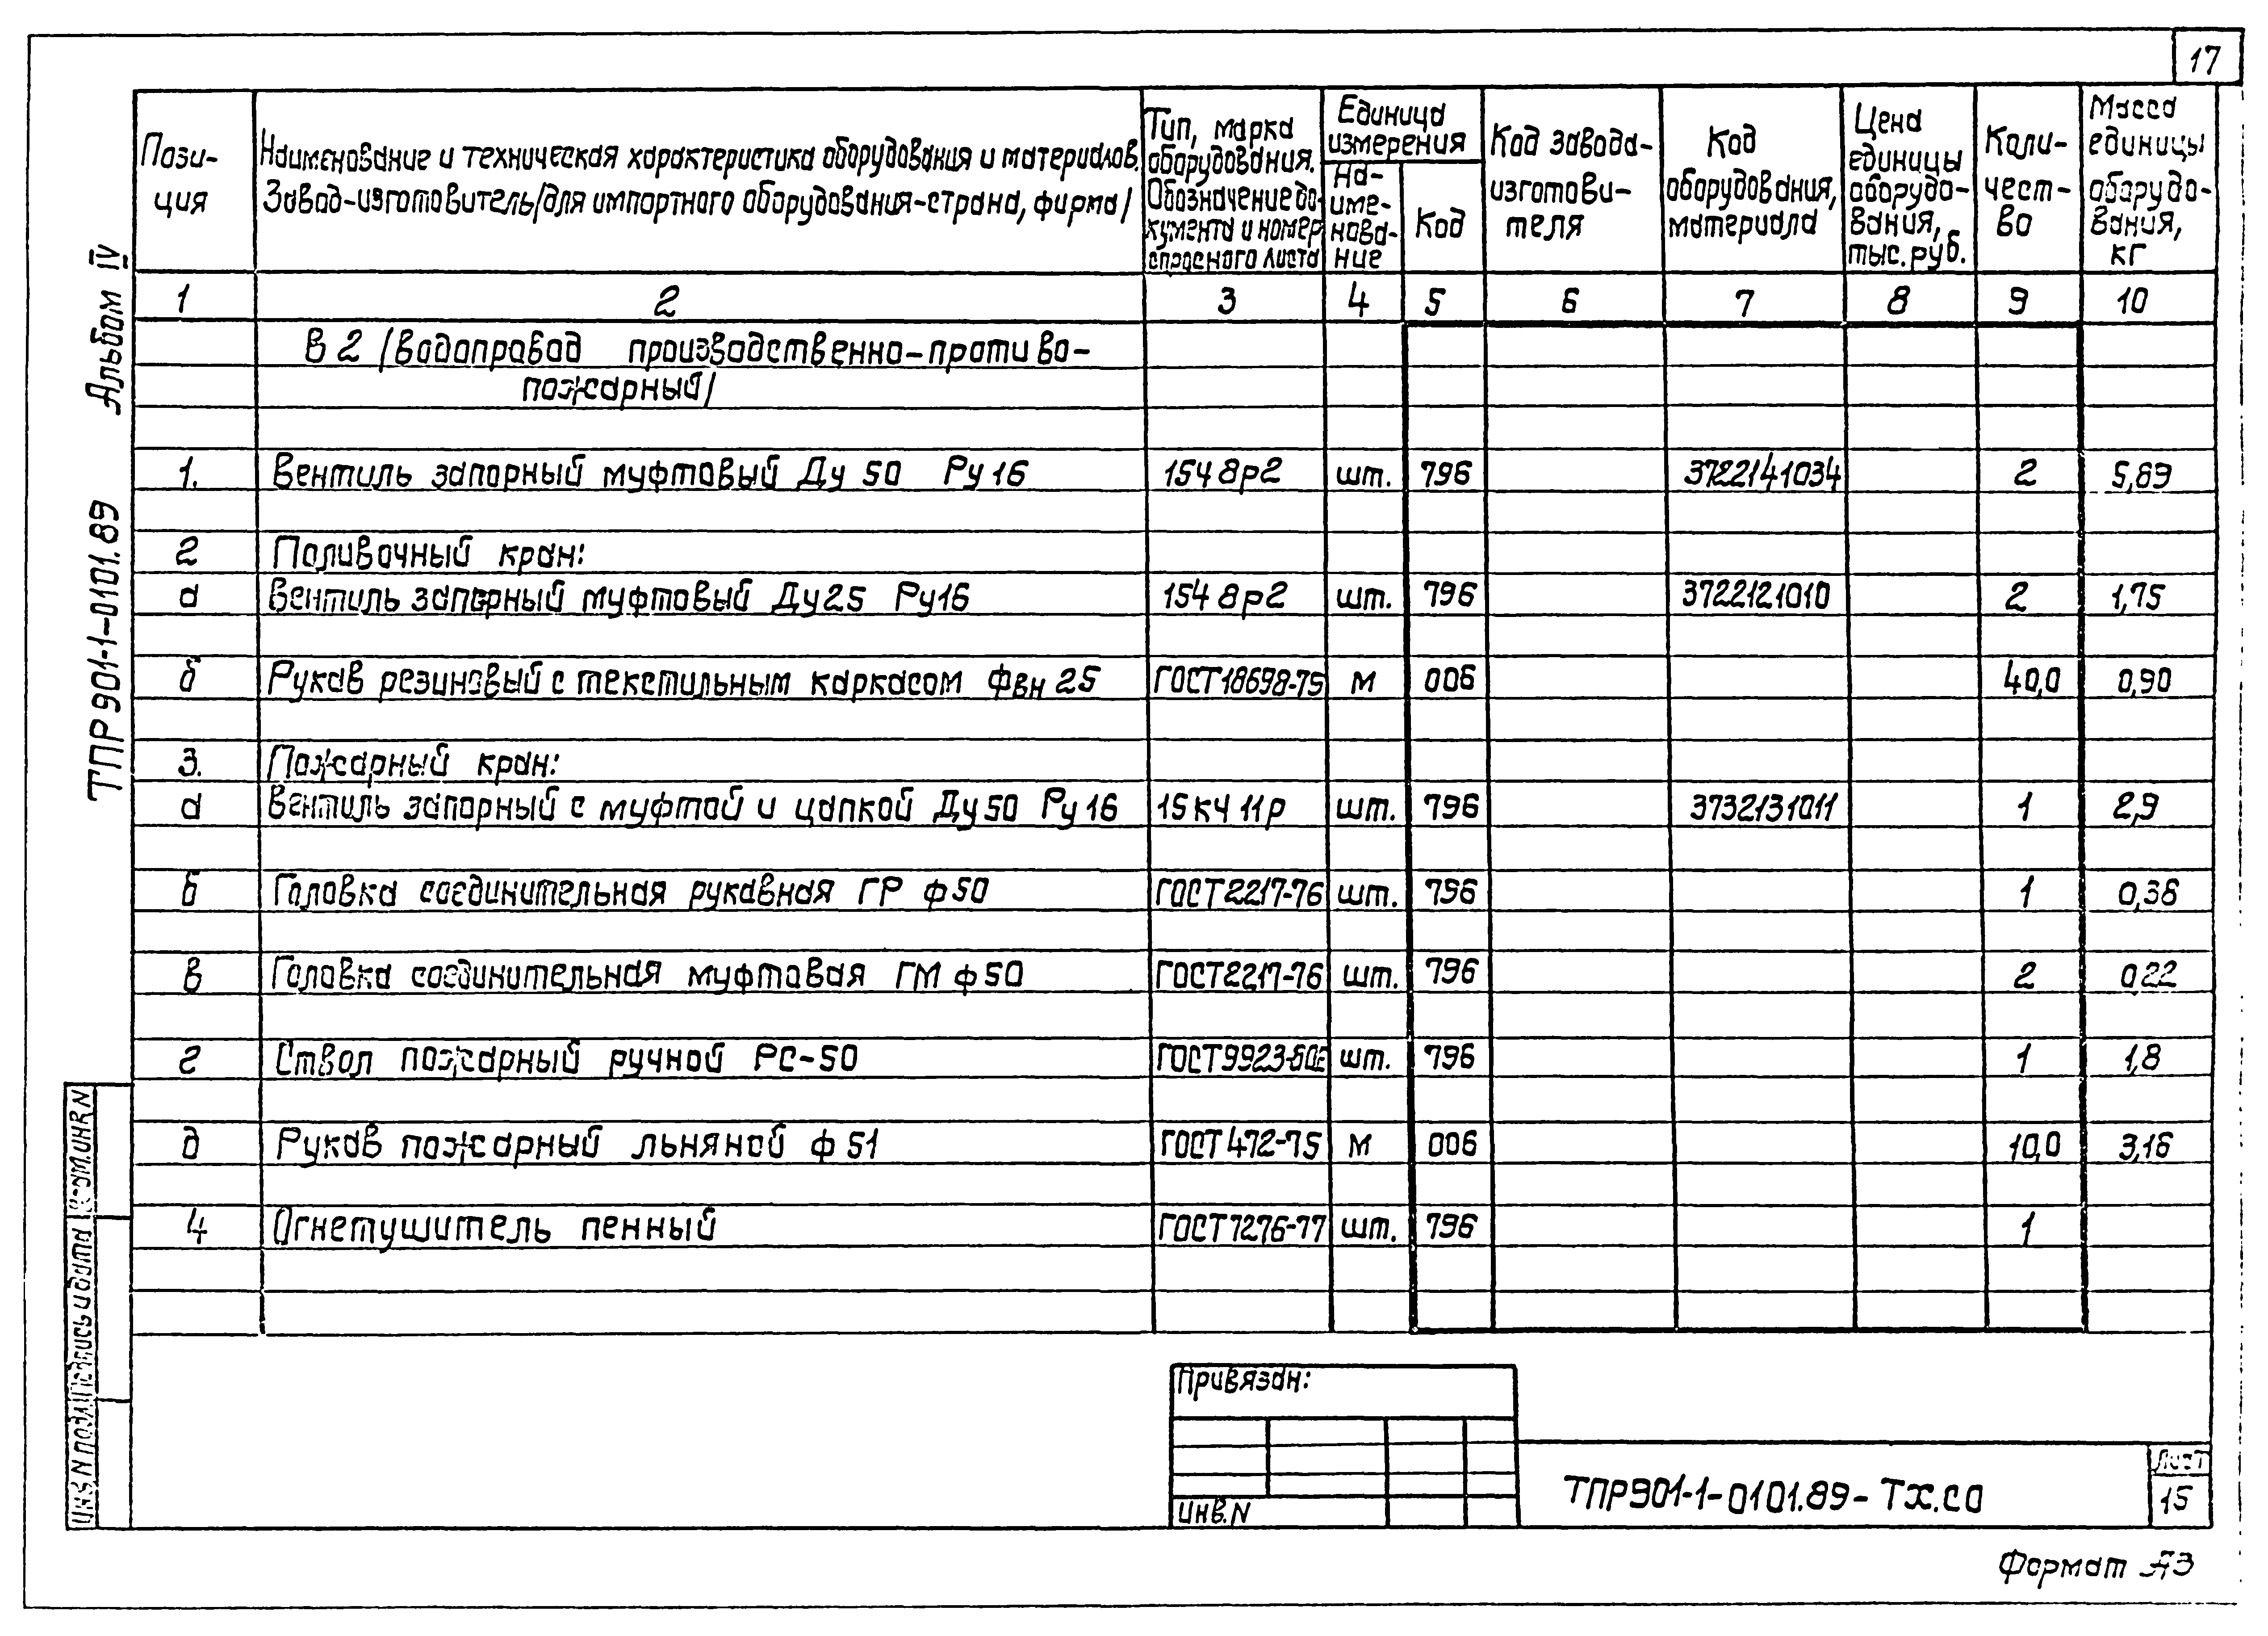 17
Пози-
ция
Наименование и техническая характеристика оборудования и материалов.
Завод-изготовитель/для импортного оборудования-страна, фирма/
Тип, марка
оборудования.
Обозначение до-
кумента и номер
опросного листа
Единица
измерения
На-
име-
нова-
ние
Код
Код завода-
изготови-
теля
Код
оборудования,
материала
Цена
единицы
оборудо-
вания,
тыс. руб.
Коли-
чест-
во
Масса
единицы
оборудо-
вания,
кг
1 2 3 4 5 6 7 8 9 10
В 2 /водопровод производственно-противо-
пожарный/
1. Вентиль запорный муфтовый Ду 50 Ру 16 15ч 8р2 шт. 796 3722141034 2 5,89
2 Поливочный кран:
а Вентиль запорный муфтовый Ду25 Ру16 15ч 8р2 шт. 796 3722121010 2 1,75
б Рукав резиновый с текстильным каркасом Фвн 25 ГОСТ18698-79 м 006 40,0 0,90
3. Пожарный кран:
а Вентиль запорный с муфтой и цапкой Ду50 Ру 16 15 кч 11р шт. 796 3732131011 1 2,9
б Головка соединительная рукавная ГР ф50 ГОСТ2217-76 шт. 796 1 0,36
в Головка соединительная муфтовая ГМ ф50 ГОСТ2217-76 шт. 796 2 0,22
г Ствол пожарный ручной РС-50 ГОСТ9923-80Е шт. 796 1 1,8
д Рукав пожарный льняной ф 51 ГОСТ 472-75 м 006 10,0 3,16
4 Огнетушитель пенный ГОСТ7276-77 шт. 796 1
Альбом IV
ТПР 901-1-0101.89
Инв.N подл. Подпись и дата
Привязан:
Инв.N
ТПР901-1-0101.89-ТХ.СО
Лист
15
Формат А3